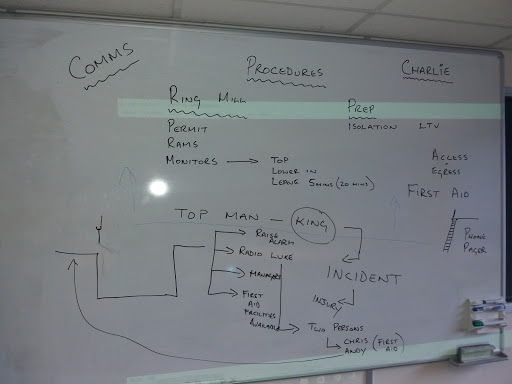 COMMS
PROCEDURES
CHARLIE
RING MILL
PREP
PERMIT
ISOLATION LTV
RAMS
MONITORS → TOP
LOWER IN
LEAVE 5 MINS (20 MINS)
ACCESS
EGRESS
FIRST AID
TOP MAN - KING
RAISE
ALARM
RADIO LUKE
MANAGERS
FIRST
AID
FACILITIES
AVAILABLE
INCIDENT
INJURY
TWO PERSONS
CHRIS
ANDY (FIRST AID)
PHONE
PAGER